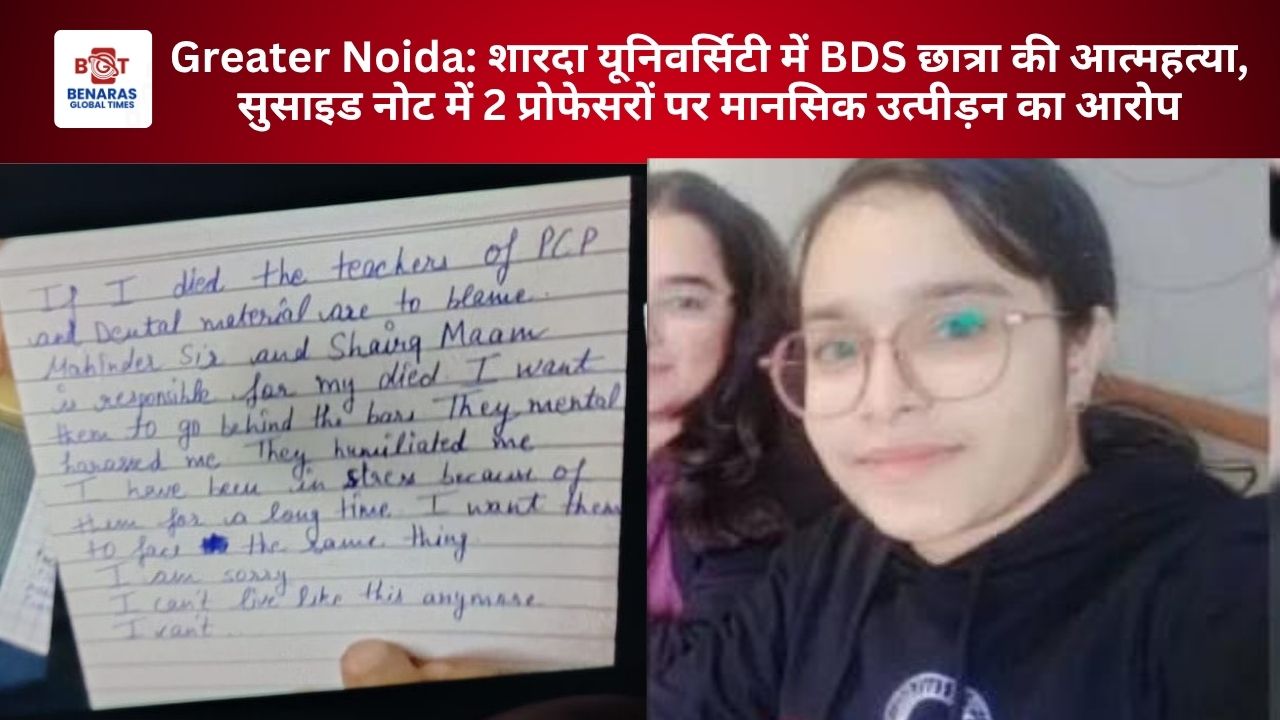 BGT
BENARAS
GLOBAL TIMES
Greater Noida: शारदा यूनिवर्सिटी में BDS छात्रा की आत्महत्या,
सुसाइड नोट में 2 प्रोफेसरों पर मानसिक उत्पीड़न का आरोप
If I died the teachers of PCP
and Dental material are to blame.
Mahinder Sir and Shairq Maam
is responsible for my died. I want
them to go behind the bars They mental
harassed me They humiliated me
I have been in stress because of
them for a long time. I want them
to face the same thing
I am sorry
I can't live like this anymore
I can't..